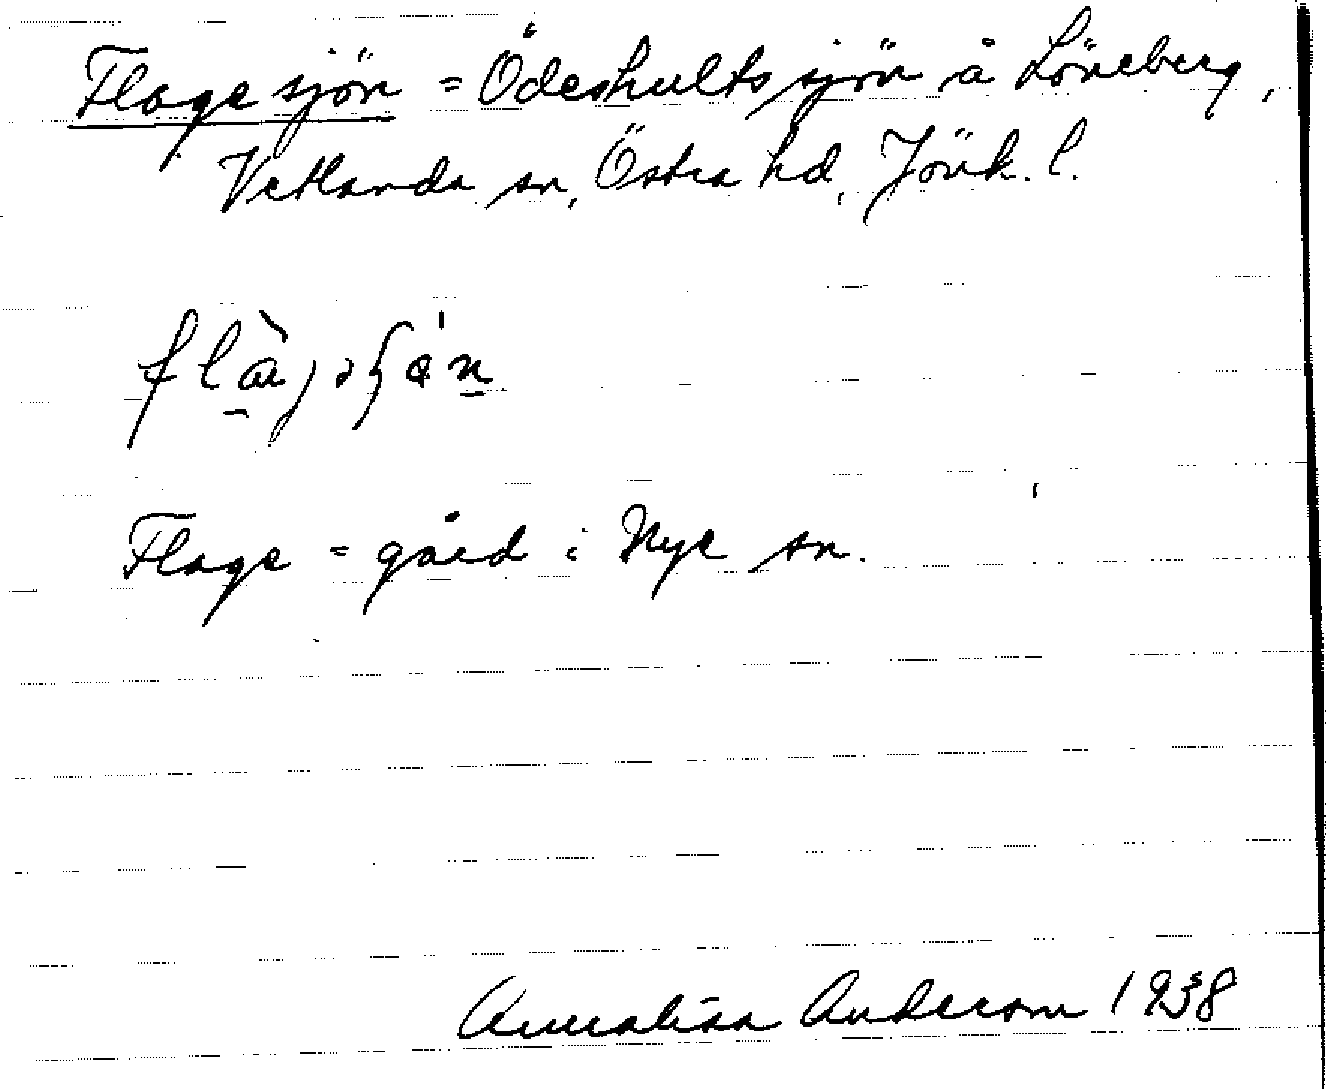 Flage sjön = Ödeshultssjön å Löneberg,
Vetlanda sn, Östra hd, Jönk. l.
Flage = gård i Nye sn.
Annalisa Anderson 1938